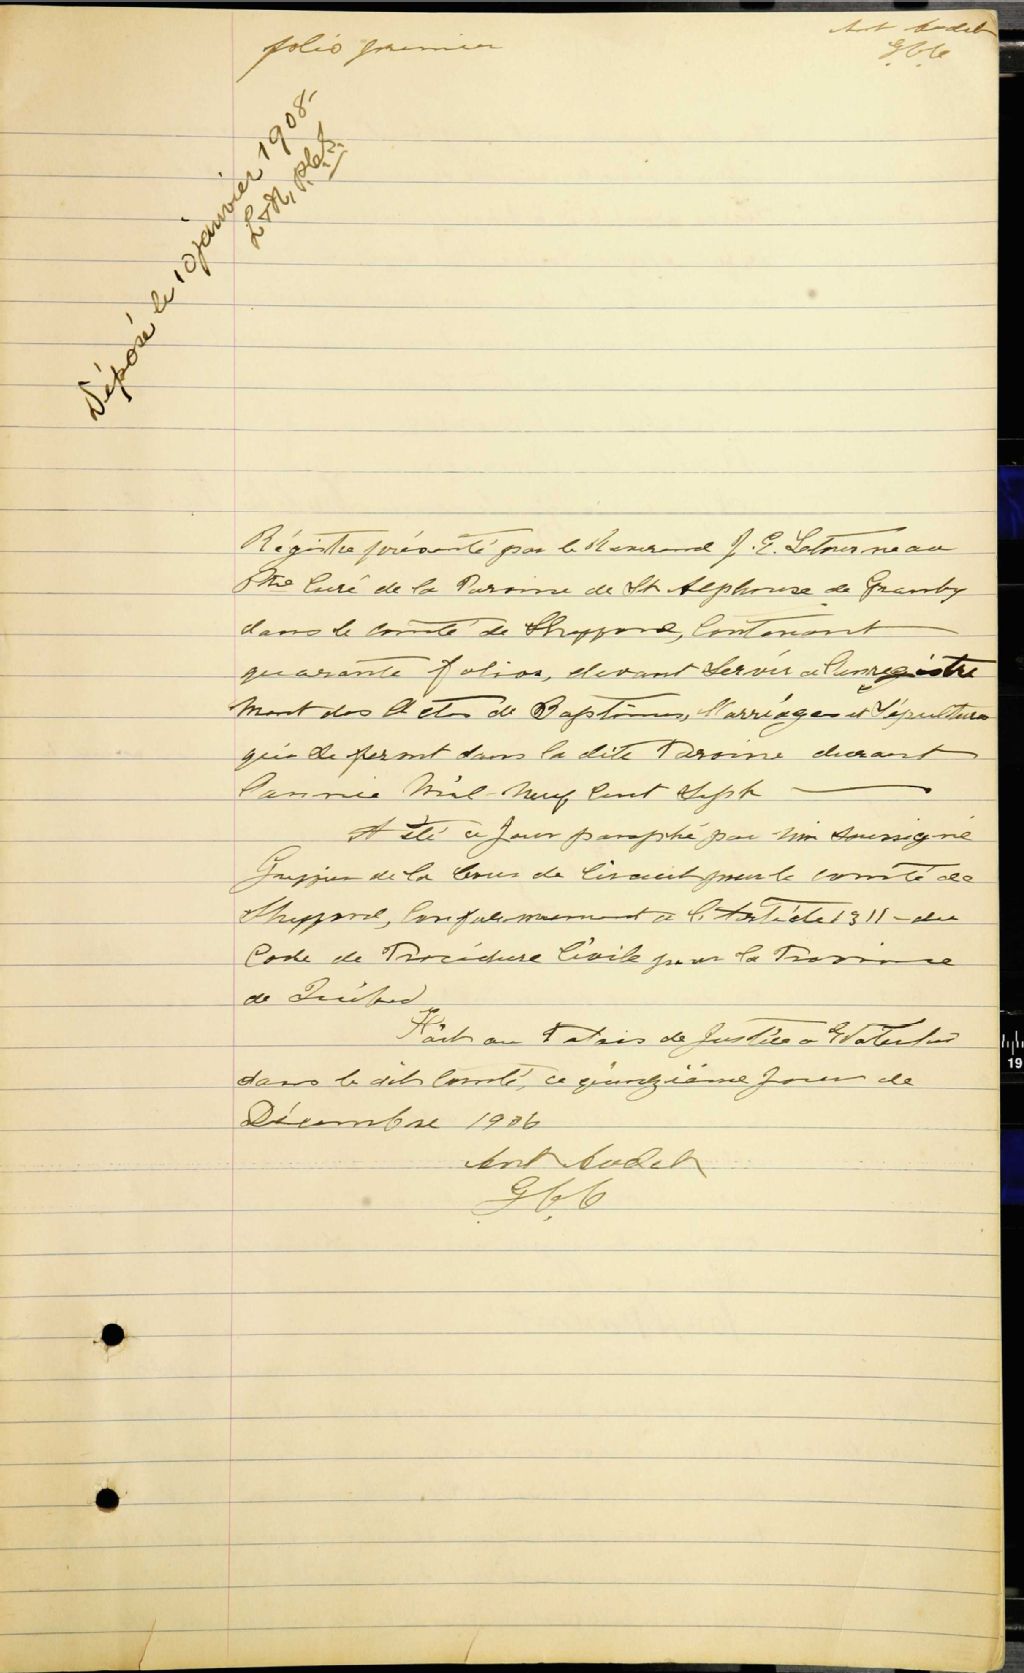 folio premier
Ant Audet
G.C.C
Déposé le 10 janvier 1908-
Régistre présenté par le Reverend J. E. Letourneau
Ptre Curé de la Paroisse de St Alphonse de Granby
dans le comté de Shefford, Contenant
quarante folios, devant Servir a l'enregistre
ment des Actes de Baptêmes, Marriages et Sépultures
qui se feront dans la dite Paroisse durant
l'année Mil-Neuf Cent Sept
A été ce Jour paraphé par Moi Soussigné
Greffier de la Cour de Circuit pour le comté de
Shefford, Conformement a l'Article 1311 - du
Code de Procédure Civile pour la Province
de Québec
Fait au Palais de Justice a Waterloo
dans le dit Comté, ce quinzième Jour de
Décembre 1906
Ant Audet
G.C.C
19